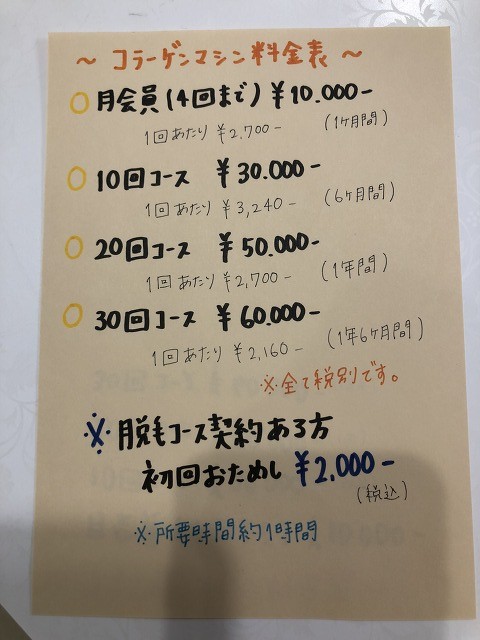 ～ コラーゲンマシン料金表 ～
○ 月会員(4回まで) ¥10.000-
1回あたり ¥2.700- (1ヶ月間)
○ 10回コース ¥30.000-
1回あたり ¥3,240- (6ヶ月間)
○ 20回コース ¥50.000-
1回あたり ¥2,700- (1年間)
○ 30回コース ¥60.000-
1回あたり ¥2,160- (1年6ヶ月間)
※全て税別です。
※脱毛コース契約ある方
初回おためし ¥2.000-
(税込)
※所要時間約1時間